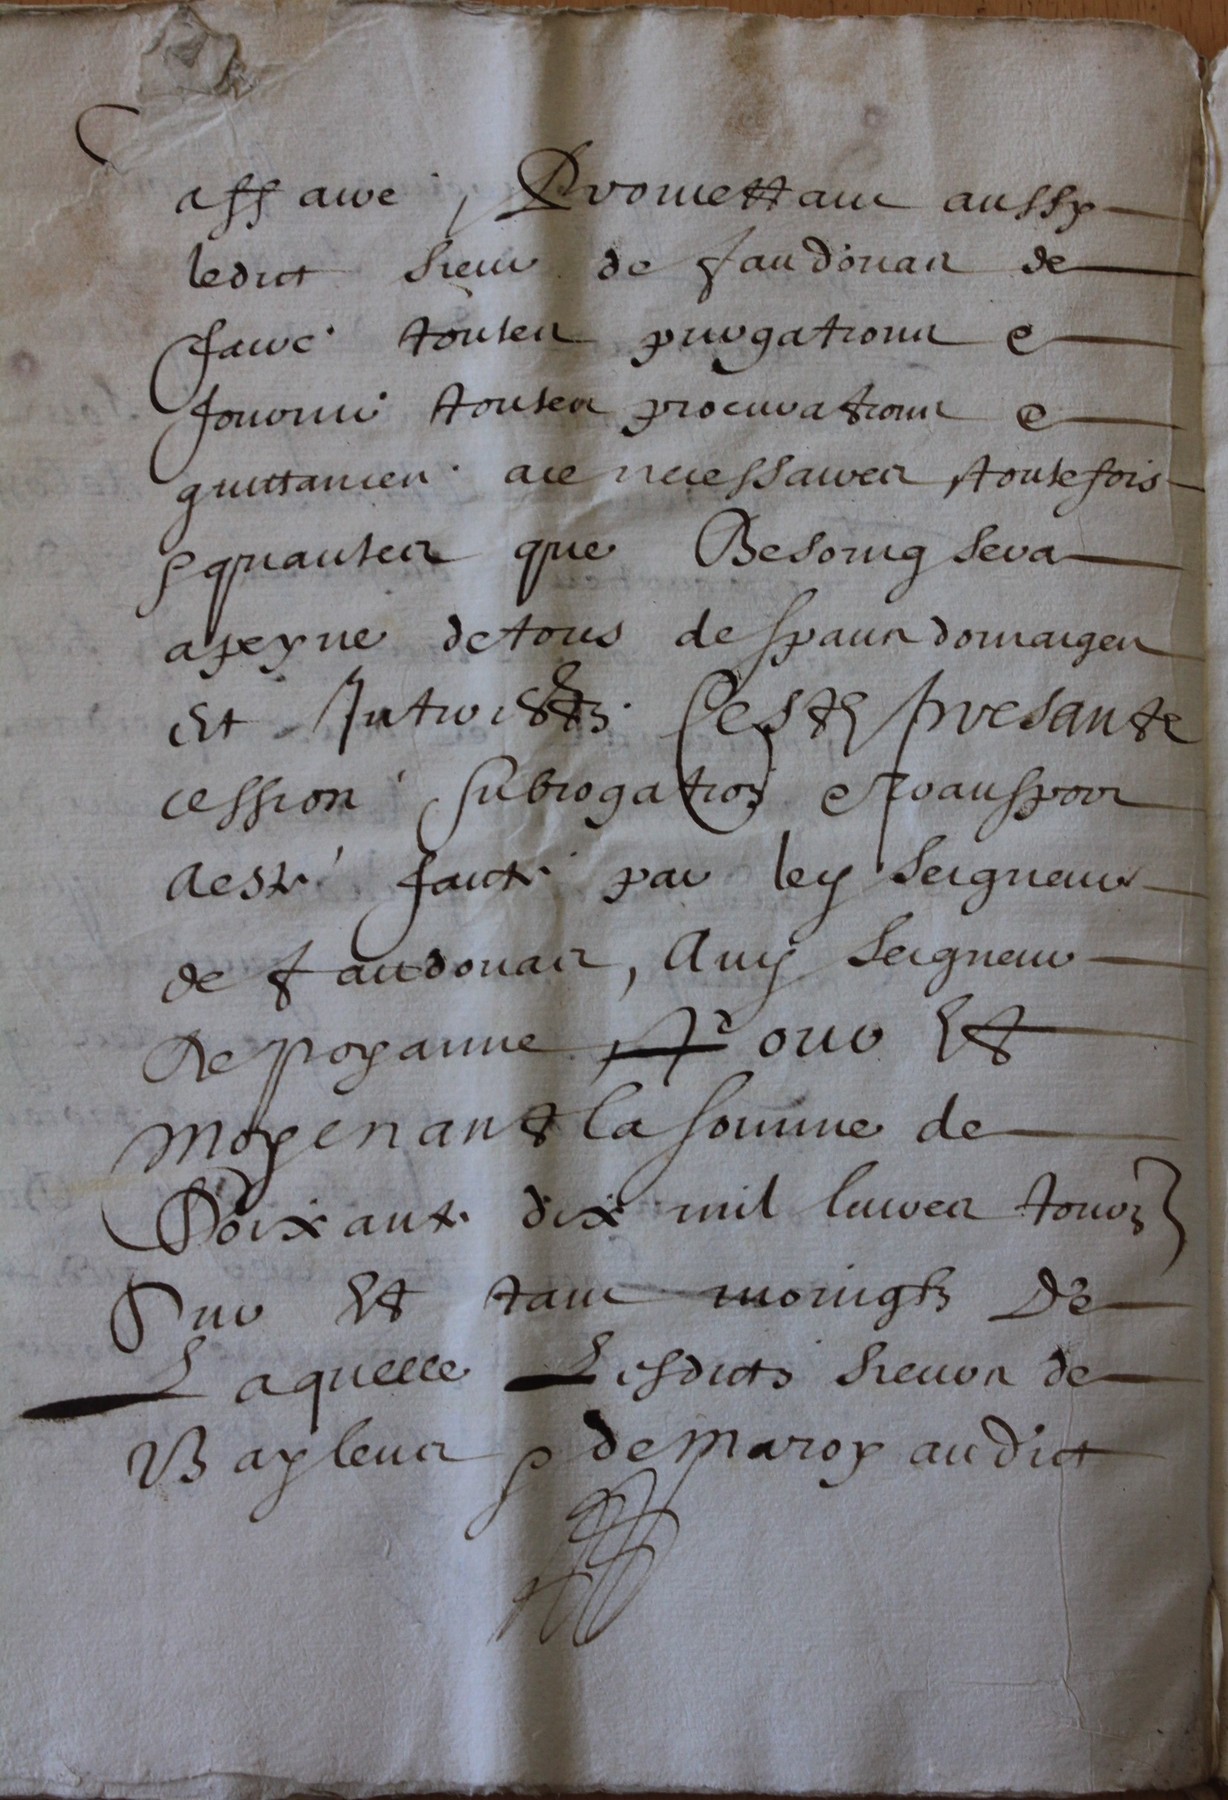 affaire, Promettant aussy
ledict sieur de faudouas de
faire toutes purgations et
fournir toutes procurations et
quittances a ce necessaires toutefois
et quantes que Besoing sera
a peyne de tous despans domaiges
Et Intrestz Ceste presante
cession subrogation et transport
a esté faicte par led seigneur
de faudouas, Aud seigneur
de poyanne pour Et
moyenant la somme de
Soixante dix mil livres tourz
Sur Et tant moingtz De
Laquelle Lesdictz sieurs de
Baylens et de maroy audict